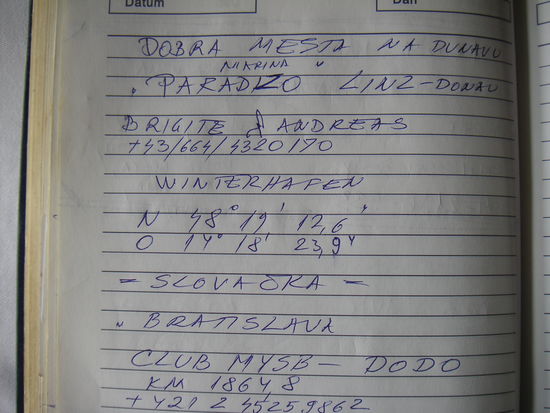 Datum
Dan
DOBRA MESTA NA DUNAVU
MARINA
"PARADIZO" LINZ-DONAU
BRIGITE & ANDREAS
+43/664/4320170
WINTERHAFEN
N 48° 19' 12,6"
O 14° 18' 23,9"
= SLOVAČKA =
" BRATISLAVA
CLUB MYSB - DODO
KM 1864,8
+421 2 45259862